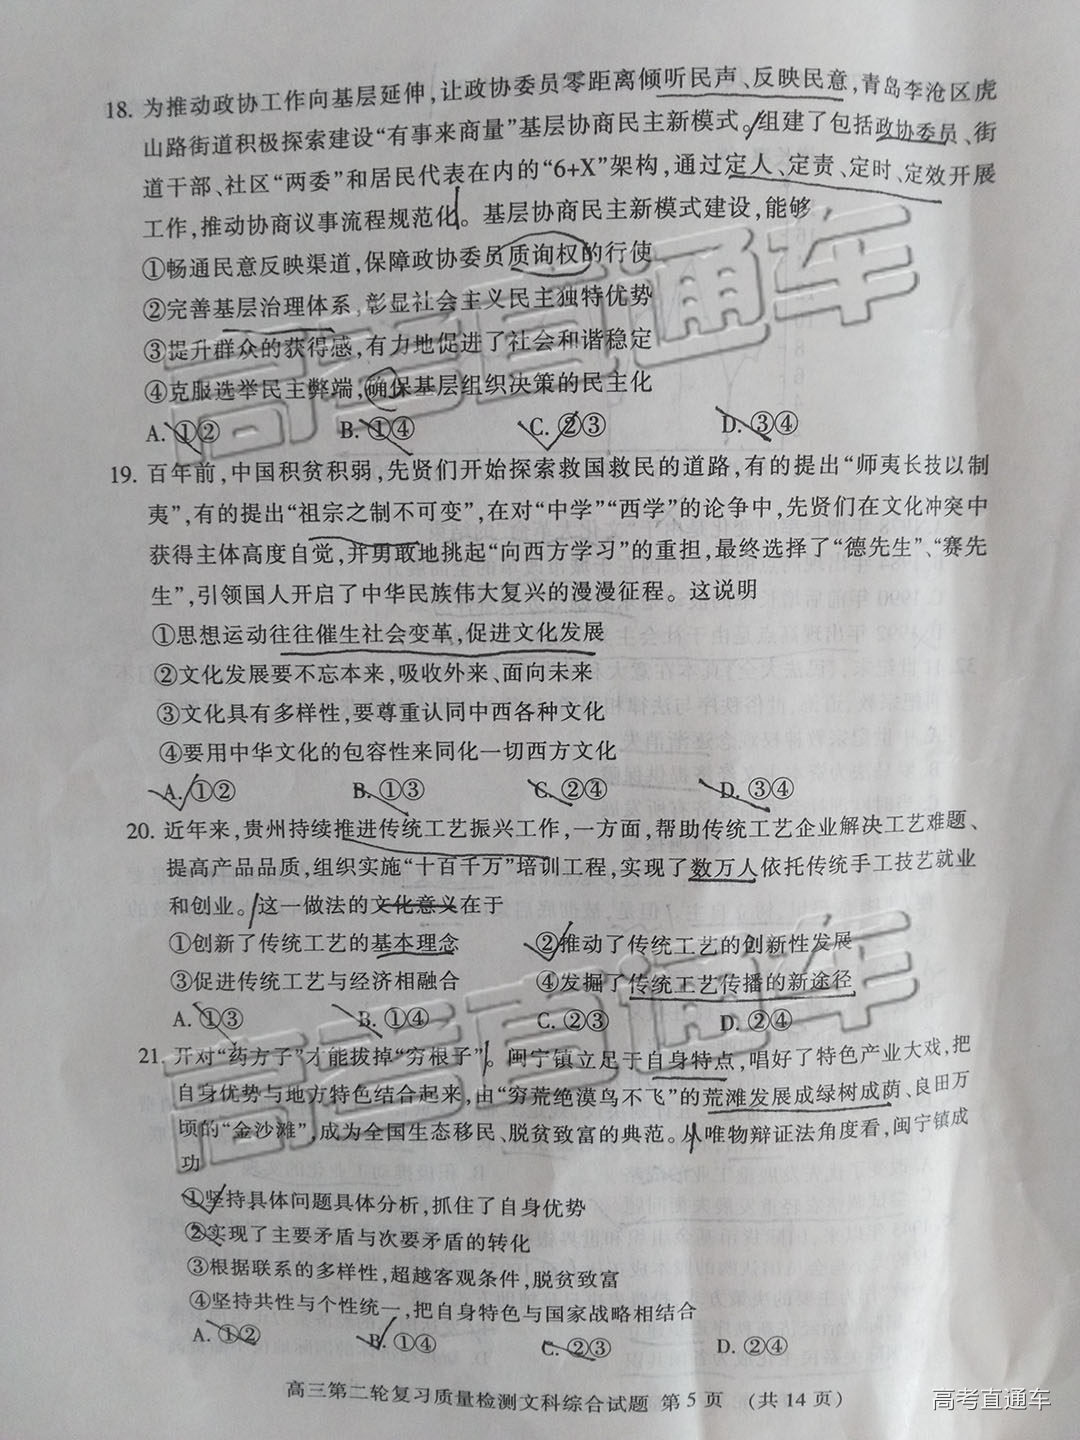 18. 为推动政协工作向基层延伸,让政协委员零距离倾听民声、反映民意,青岛李沧区虎
山路街道积极探索建设“有事来商量”基层协商民主新模式。组建了包括政协委员、街
道干部、社区“两委”和居民代表在内的“6+X”架构,通过定人、定责、定时、定效开展
工作,推动协商议事流程规范化。基层协商民主新模式建设,能够
①畅通民意反映渠道,保障政协委员质询权的行使
②完善基层治理体系,彰显社会主义民主独特优势
③提升群众的获得感,有力地促进了社会和谐稳定
④克服选举民主弊端,确保基层组织决策的民主化
A. ①② B. ①④ C. ②③ D. ③④
19. 百年前,中国积贫积弱,先贤们开始探索救国救民的道路,有的提出“师夷长技以制
夷”,有的提出“祖宗之制不可变”,在对“中学”“西学”的论争中,先贤们在文化冲突中
获得主体高度自觉,并勇敢地挑起“向西方学习”的重担,最终选择了“德先生”、“赛先
生”,引领国人开启了中华民族伟大复兴的漫漫征程。这说明
①思想运动往往催生社会变革,促进文化发展
②文化发展要不忘本来,吸收外来、面向未来
③文化具有多样性,要尊重认同中西各种文化
④要用中华文化的包容性来同化一切西方文化
A. ①② B. ①③ C. ②④ D. ③④
20. 近年来,贵州持续推进传统工艺振兴工作,一方面,帮助传统工艺企业解决工艺难题、
提高产品品质,组织实施“十百千万”培训工程,实现了数万人依托传统手工技艺就业
和创业。这一做法的文化意义在于
①创新了传统工艺的基本理念 ②推动了传统工艺的创新性发展
③促进传统工艺与经济相融合 ④发掘了传统工艺传播的新途径
A. ①③ B. ①④ C. ②③ D. ②④
21. 开对“药方子”才能拔掉“穷根子”。闽宁镇立足于自身特点,唱好了特色产业大戏,把
自身优势与地方特色结合起来,由“穷荒绝漠鸟不飞”的荒滩发展成绿树成荫、良田万
顷的“金沙滩”,成为全国生态移民、脱贫致富的典范。从唯物辩证法角度看,闽宁镇成
功
①坚持具体问题具体分析,抓住了自身优势
②实现了主要矛盾与次要矛盾的转化
③根据联系的多样性,超越客观条件,脱贫致富
④坚持共性与个性统一,把自身特色与国家战略相结合
A. ①② B. ①④ C. ②③ D. ②④
高三第二轮复习质量检测文科综合试题 第5页 (共14页)
高考直通车
高考直通车
高考直通车